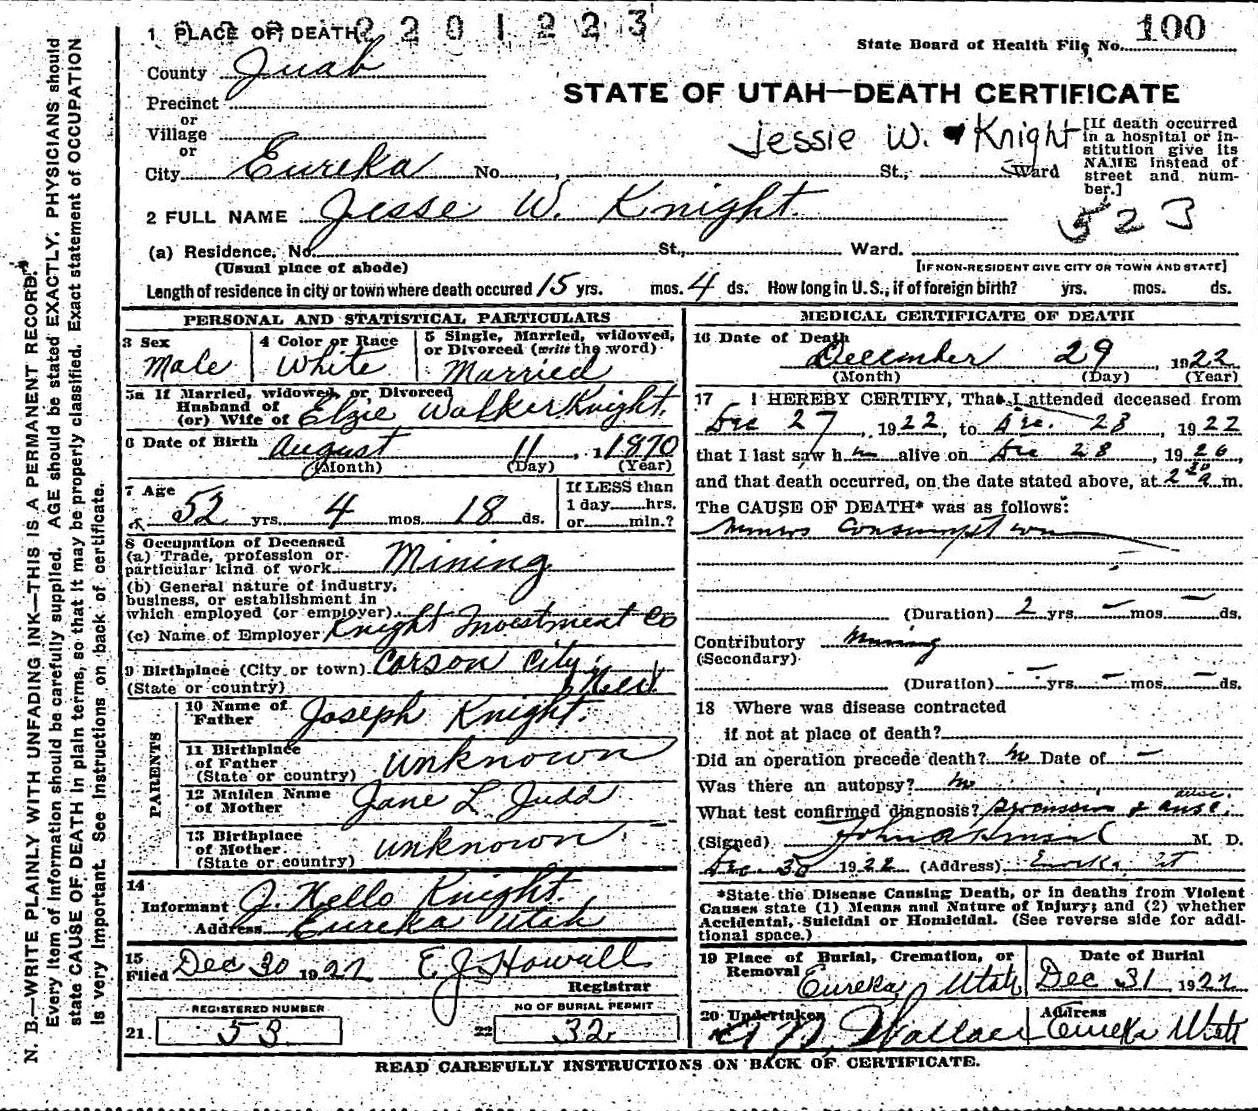 1 PLACE OF DEATH 2201223
100
State Board of Health File No.
County Juab
STATE OF UTAH—DEATH CERTIFICATE
Precinct
or
Village
or
City Eureka No. St., Ward
Jessie W. Knight
[If death occurred in a hospital or institution give its NAME instead of street and number.]
2 FULL NAME Jesse W. Knight.
523
(a) Residence, No. St., Ward.
(Usual place of abode)
[IF NON-RESIDENT GIVE CITY OR TOWN AND STATE]
Length of residence in city or town where death occured 15 yrs. mos. 4 ds. How long in U.S., if of foreign birth? yrs. mos. ds.
PERSONAL AND STATISTICAL PARTICULARS
3 Sex
Male
4 Color or Race
White
5 Single, Married, widowed, or Divorced (write the word)
Married
5a If Married, widowed, or Divorced
Husband of
(or) Wife of Elzie Walker Knight.
6 Date of Birth August 11, 1870
(Month) (Day) (Year)
7 Age
52 yrs. 4 mos. 18 ds.
If LESS than
1 day hrs.
or min.?
8 Occupation of Deceased
(a) Trade, profession or
particular kind of work Mining
(b) General nature of industry,
business, or establishment in
which employed (or employer)
(c) Name of Employer Knight Investment Co
9 Birthplace (City or town) Carson City,
(State or country) Nev.
PARENTS
10 Name of
Father Joseph Knight.
11 Birthplace
of Father unknown
(State or country)
12 Maiden Name
of Mother Jane L. Judd
13 Birthplace
of Mother unknown
(State or country)
14
Informant J. Nello Knight.
Address Eureka Utah
15
Filed Dec 30 1922 E. J. Howell
Registrar
REGISTERED NUMBER
21. 53
NO OF BURIAL PERMIT
22 32
MEDICAL CERTIFICATE OF DEATH
16 Date of Death
December 29, 1922
(Month) (Day) (Year)
17 I HEREBY CERTIFY, That I attended deceased from
Dec 27, 1922, to Dec. 28, 1922
that I last saw h m alive on Dec 28, 19
and that death occurred, on the date stated above, at 2 30 a m.
The CAUSE OF DEATH* was as follows:
Miners Consumption
(Duration) 2 yrs. — mos. — ds.
Contributory Mining
(Secondary)
(Duration) — yrs. — mos. — ds.
18 Where was disease contracted
if not at place of death?
Did an operation precede death? No Date of —
Was there an autopsy? No
What test confirmed diagnosis?
(Signed) M. D.
Dec 30 1922 (Address) Eureka Ut
*State the Disease Causing Death, or in deaths from Violent
Causes state (1) Means and Nature of Injury; and (2) whether
Accidental, Suicidal or Homicidal. (See reverse side for addi-
tional space.)
19 Place of Burial, Cremation, or
Removal Eureka Utah
Date of Burial
Dec 31, 1922
20 Undertaker
Wallace
Address
Eureka Utah
READ CAREFULLY INSTRUCTIONS ON BACK OF CERTIFICATE.
N. B.—WRITE PLAINLY WITH UNFADING INK—THIS IS A PERMANENT RECORD.
Every item of information should be carefully supplied. AGE should be stated EXACTLY. PHYSICIANS should
state CAUSE OF DEATH in plain terms, so that it may be properly classified. Exact statement of OCCUPATION
is very important. See instructions on back of certificate.